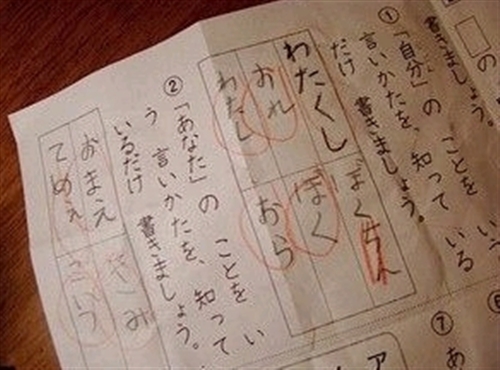 □の
書きましょう。
①「自分」の ことを
言いかたを、知って いる
だけ 書きましょう。
わたくし
ぼくちん
おれ
ぼく
わたし
おら
②「あなた」の ことを い
う 言いかたを、知って
いるだけ 書きましょう。
おまえ
きみ
てめえ
こいつ
⑦
あ
ア